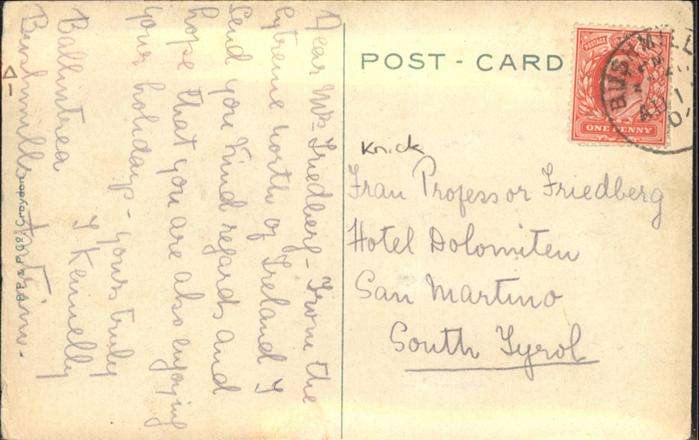 Dear Mrs Friedberg - From the
extreme north of Ireland I
send you kind regards and
hope that you are also enjoying
your holidays - yours truly
J Kennelly
Ballintrea
Bushmills Antrim.
POST-CARD
POSTAGE
ONE PENNY
BUSHMILLS
AU 1
Knick
Frau Professor Friedberg
Hotel Dolomiten
San Martino
South Tyrol